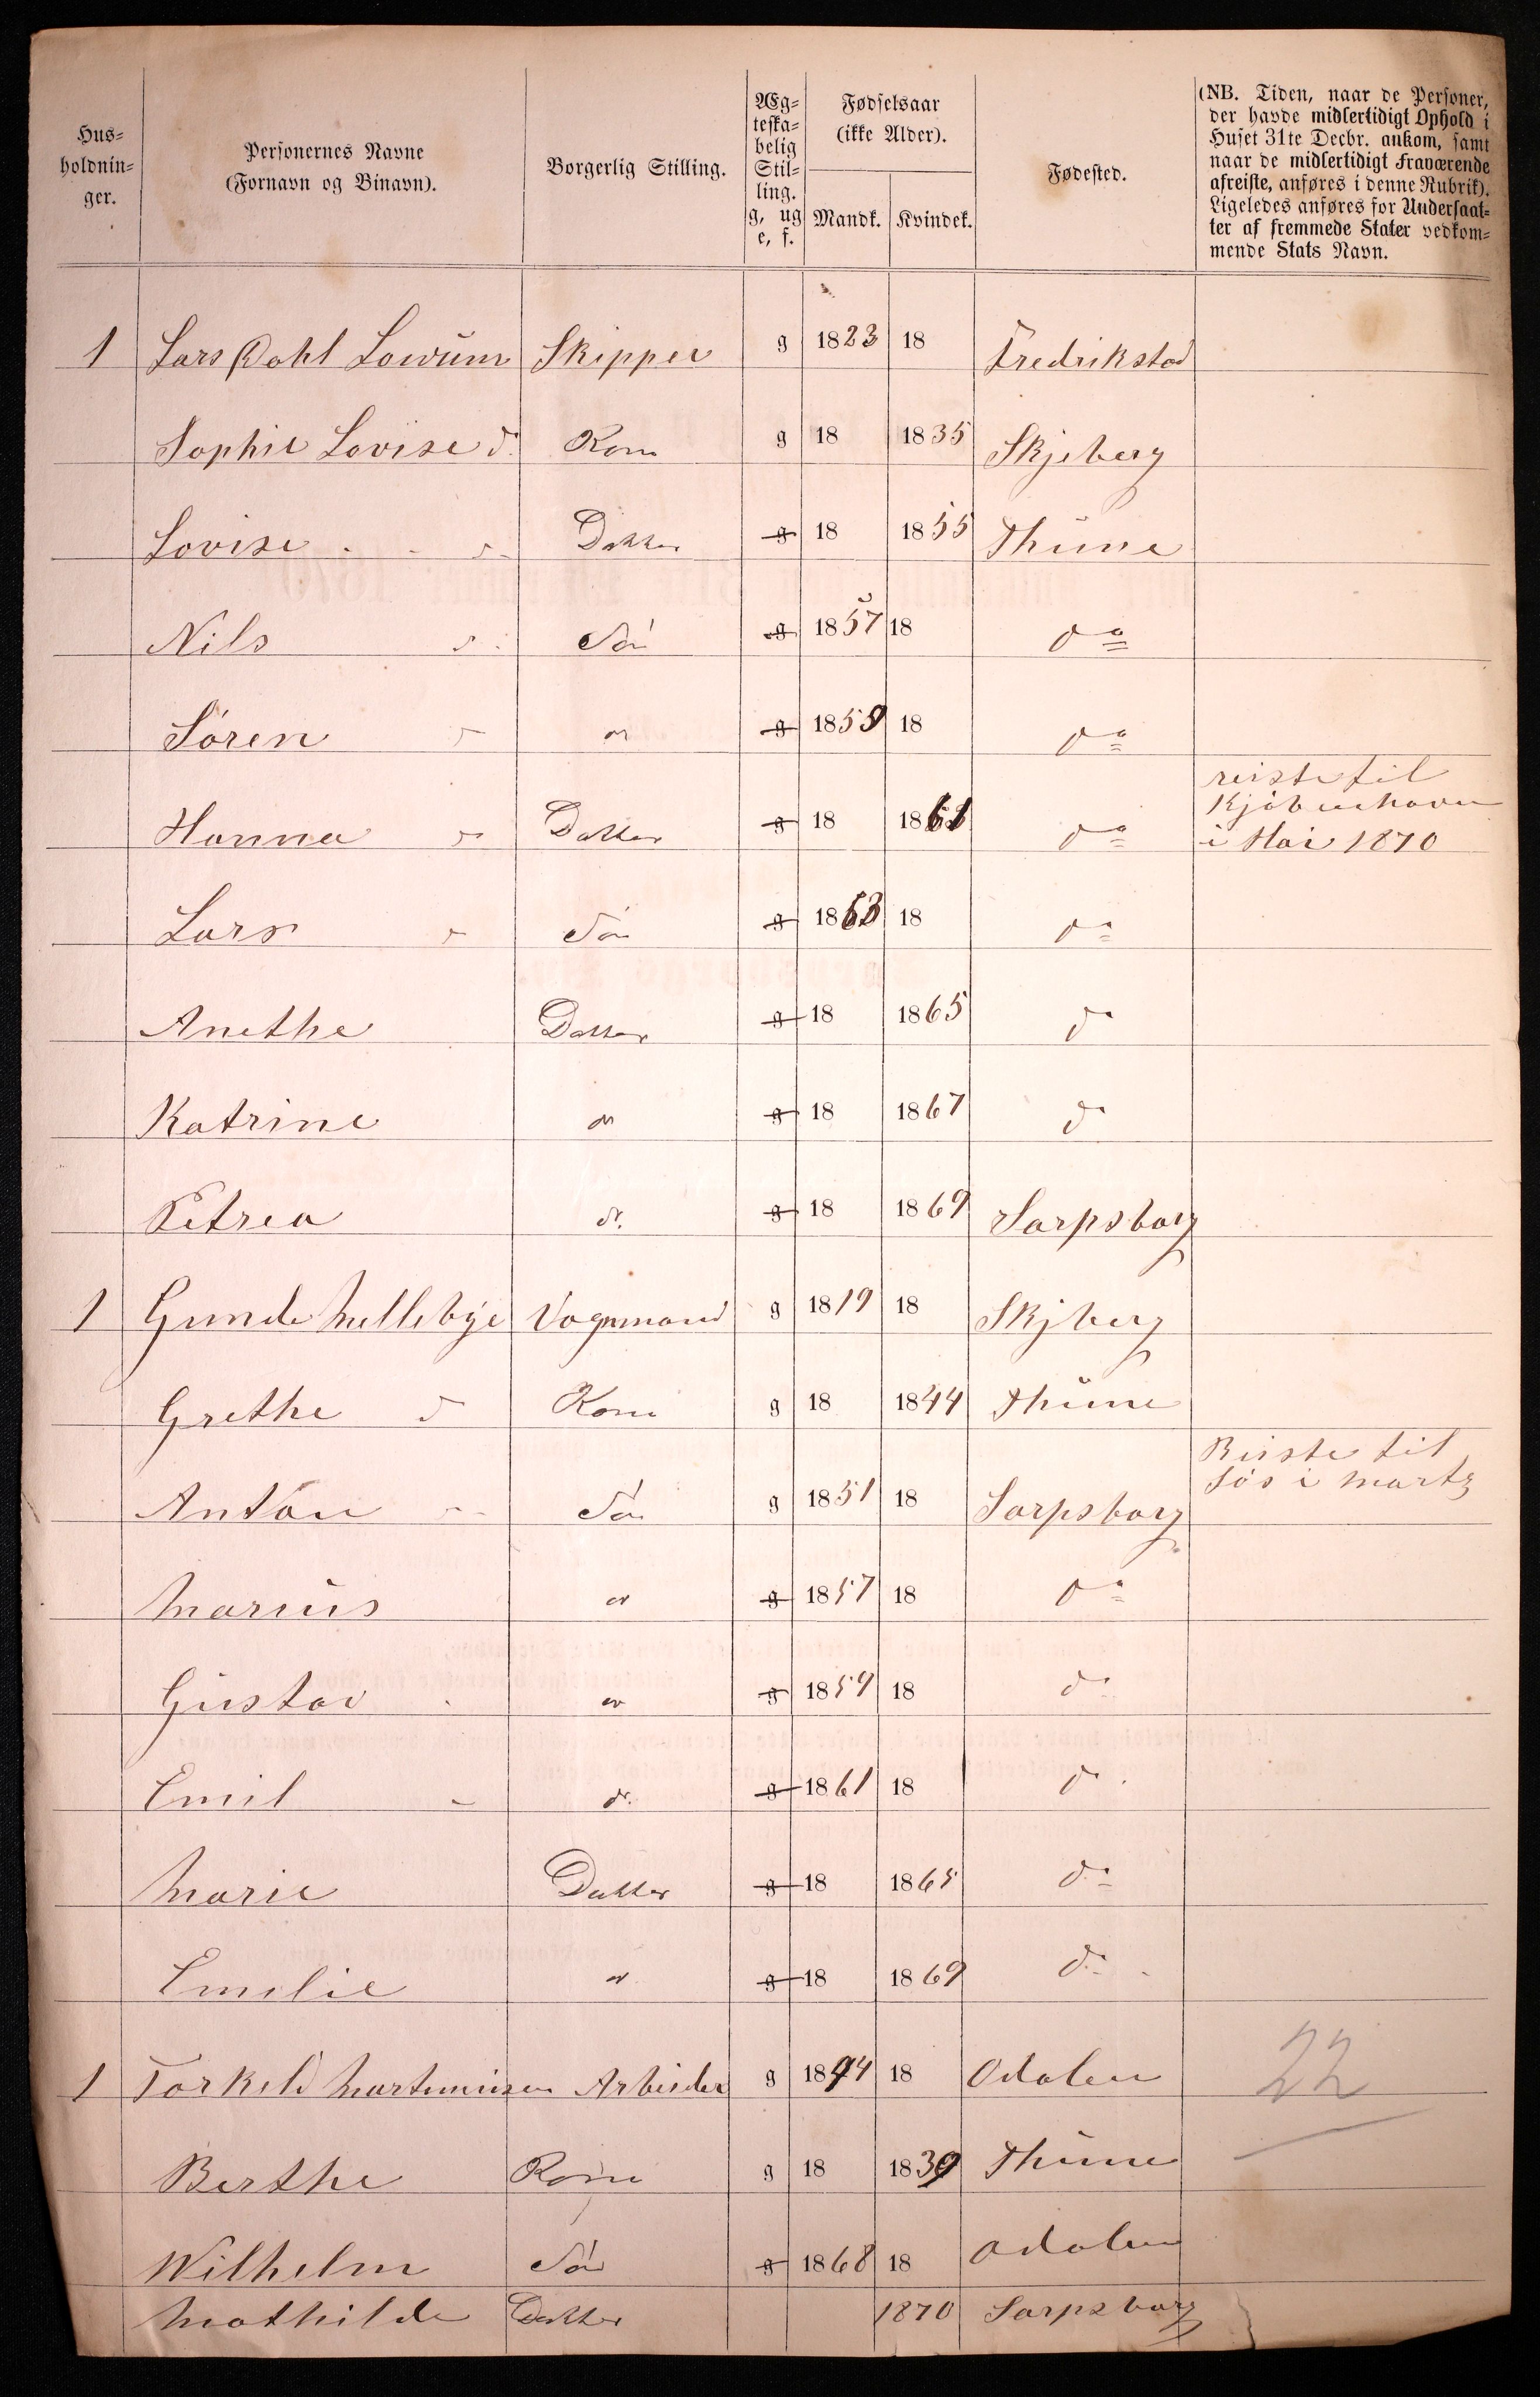 Hus-
holdnin-
ger.
Personernes Navne
(Fornavn og Binavn).
Borgerlig Stilling.
Æg-
teska-
belig
Stil-
ling.
g, ug
e, f.
Fødselsaar
(ikke Alder).
Mandk. Kvindek.
Fødested.
(NB. Tiden, naar de Personer,
der havde midlertidigt Ophold i
Huset 31te Decbr. ankom, samt
naar de midlertidigt Fraværende
afreiste, anføres i denne Rubrik).
Ligeledes anføres for Undersaat-
ter af fremmede Stater vedkom-
mende Stats Navn.
1 Lars Dahl Lowum Skipper g 1823 18 Fredrikstad
Sophie Lovise d. Kone g 18 1835 Skjeberg
Lovise d. Datter g 18 1855 Thune
Nils d. Sön g 1857 18 do
Sören d do g 1859 18 do
reiste til
Kjöbenhavn
Hanna d Datter g 18 1861 do i Mai 1870
Lars d Sön g 1863 18 do
Anethe Datter g 18 1865 do
Katrine do g 18 1867 do
Petrea do g 18 1869 Sarpsborg
1 Gunde Hellebye Vognmand g 1819 18 Skjberg
Grethe d Kone g 18 1844 Thune
Reiste til
Anton d Sön g 1851 18 Sarpsborg Sös i Marts
Marius do g 1857 18 do
Gustav do g 1859 18 do
Emil do g 1861 18 do
Marie Datter g 18 1865 do
Emelie do g 18 1869 do
1 Torkeld Martinusen Arbeider g 1844 18 Odalen 22
Berthe Kone g 18 1839 Thune
Wilhelm Sön g 1868 18 Odalen
Mathilde Datter 1870 Sarpsborg